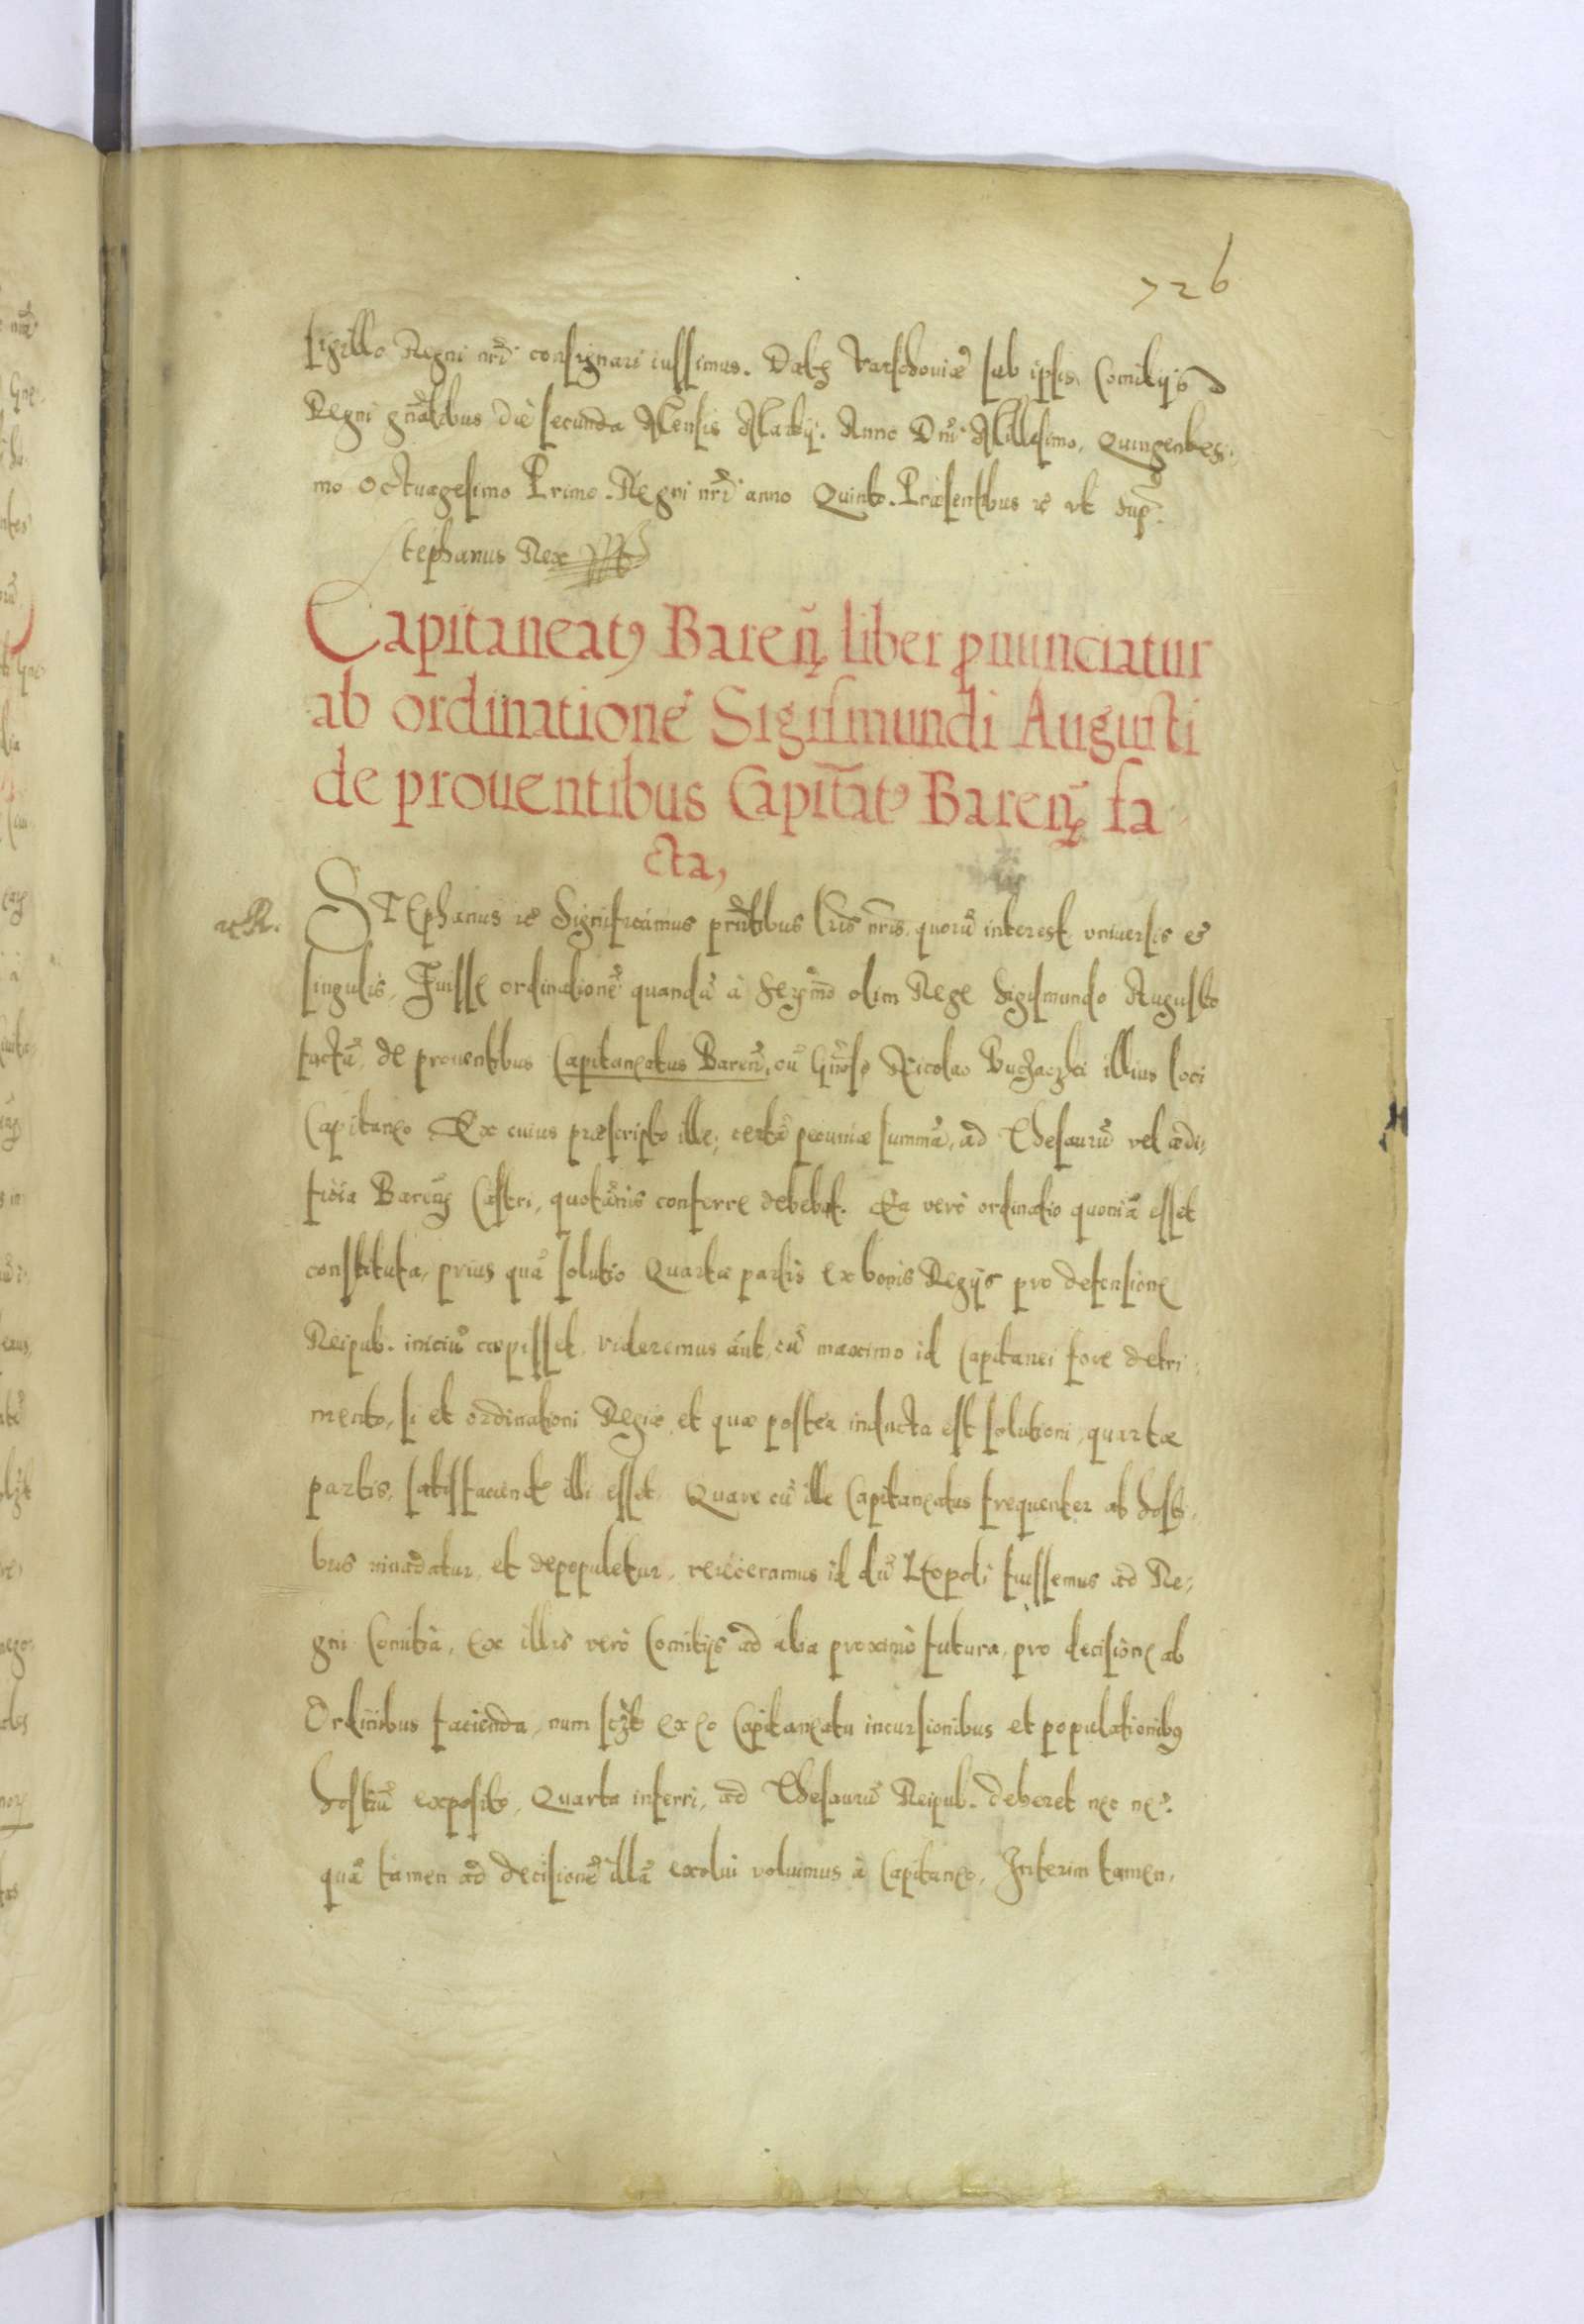 726
sigillo Regni nrĩ consignari iussimus. Datȩ Varschouiæ sub ipsis Comitijs
Regni gñalibus die secunda Mensis Martij. Anno Dnĩ Millesimo, Quingentesi-
mo Octuagesimo Primo. Regni nrĩ anno Quinto. Præsentibus ꝛc vt sup̃.
Stephanus Rex
Capitaneatꝰ Bareñ liber ꝓnunciatur
ab ordinatione Sigismundi Augusti
de prouentibus Capitãtꝰ Bareñ fa-
cta,
STephanus ꝛc Significamus pr̃ntibus lr̃is nr̃is, quorũ interest, vniuersis et
singulis, Fuisse ordinationẽ quandã à Ser̃mo olim Rege Sigismundo Augusto
factã, de prouentibus Capitaneatus Bareñ, cũ Gñoso Nicolao Buczaczki illius loci
Capitaneo Ex cuius præscripto ille, certã pecuniæ summã, ad Thesaurũ vel ædi-
ficia Bareñ Castri, quotãnis conferre debebat. Ea verò ordinatio quoniã esset
constituta, prius quã solutio Quartæ partis ex bonis Regijs pro defensione
Reipub. iniciũ cæpisset, videremus aũt, cũ maximo id Capitanei fore detri-
mento, si et ordinationi Regiæ, et quæ postea inducta est solutioni, quartæ
partis, satisfaciendũ illi esset. Quare cũ ille Capitaneatus frequenter ab hosti-
bus inuadatur, et depopuletur, reieceramus id dũ Leopoli fuissemus ad Re-
gni Comitia, Ex illis verò Comitijs ad alia proximò futura, pro decisione ab
Ordinibus facienda, num sczt ex eo Capitaneatu incursionibus et populationibꝰ
hostiũ exposito, Quarta inferri, ad Thesaurũ Reipub. deberet nec ne?
quã tamen ad decisionẽ illã exolui voluimus à Capitaneo, Interim tamen,